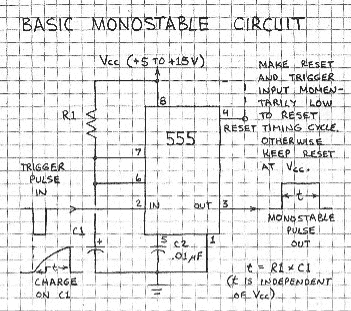 BASIC MONOSTABLE CIRCUIT
Vcc (+5 TO +15V)
MAKE RESET
AND TRIGGER
INPUT MOMEN-
TARILY LOW
TO RESET
TIMING CYCLE.
OTHERWISE
KEEP RESET
AT Vcc.
R1
8
4
RESET
555
7
6
TRIGGER
PULSE
IN
2 IN
OUT 3
t
MONOSTABLE
PULSE
OUT
C1
+
5
C2
.01µF
1
t
CHARGE
ON C1
t = R1 × C1
(t IS INDEPENDENT
OF Vcc)